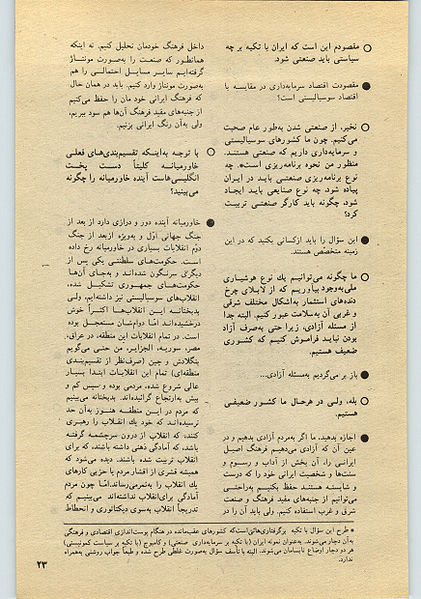 ○ مقصودم این است که ایران با تکیه بر چه
سیاستی باید صنعتی شود.
● مقصودت اقتصاد سرمایه‌داری در مقایسه با
اقتصاد سوسیالیستی است؟
○ نخیر، از صنعتی شدن به‌طور عام صحبت
می‌کنیم. چون ما کشورهای سوسیالیستی
و سرمایه‌داری داریم که صنعتی هستند.
منظور من نحوه برنامه‌ریزی است*. چه
نوع برنامه‌ریزی صنعتی باید در ایران
پیاده شود، چه نوع صنایعی باید ایجاد
شود، چگونه باید کارگر صنعتی تربیت
کرد؟
● این سؤال را باید ازکسانی بکنید که در این
زمینه متخصّص هستند.
○ ما چگونه می‌توانیم یك نوع هوشیاری
ملی‌به‌وجود بیاوریم که از لابلای چرخ
دنده‌های استثمار به‌اشکال مختلف شرقی
و غربی آن به‌سلامت عبور کنیم. البته جدا
از مسئله آزادی، زیرا حتی به‌صرف آزاد
بودن نباید فراموش کنیم که کشوری
ضعیف هستیم.
● باز برمی‌گردیم به‌مسئله آزادی...
○ بله، ولی در هرحال ما کشور ضعیفی
هستیم.
● اجازه بدهید. ما اگر به‌مردم آزادی بدهیم و در
عین آن که آزادی می‌دهیم فرهنگ اصیل
ایرانی را، آن بخش از آداب و رسوم و
سنت‌ها و شخصیت ایرانی خود را که درست
و شایسته هستند حفظ بکنیم به‌راحتی
می‌توانیم از جنبه‌های مفید فرهنگ و صنعت
شرق و غرب استفاده کنیم. ولی باید آن را در
داخل فرهنگ خودمان تحلیل کنیم. نه اینکه
همانطور که صنعت را به‌صورت مونتاژ
گرفته‌ایم سایر مسایل احتمالی را هم
به‌صورت مونتاژ وارد کنیم. باید در همان حال
که فرهنگ ایرانی خود مان را حفظ می‌کنیم
از جنبه‌های مفید فرهنگ آن‌ها هم سود ببریم،
ولی به‌آن رنگ ایرانی بزنیم.
○ با توجه به‌اینکه تقسیم‌بندی‌های فعلی
خاورمیانه کلیتاً دست پخت
انگلیسی‌هاست آینده خاورمیانه را چگونه
می‌بینید؟
● خاورمیانه آینده دور و درازی دارد از بعد از
جنگ جهانی اوّل و به‌ویژه ازبعد از جنگ
دوّم انقلابات بسیاری در خاورمیانه رخ داده
است. حکومت‌های سلطنتی یکی پس از
دیگری سرنگون شده‌اند و به‌جای آن‌ها
حکومت‌های جمهوری تشکیل شده،
انقلاب‌های سوسیالیستی نیز داشته‌ایم. ولی
بدبختانه این انقلاب‌ها اکثراً خوش
درخشیده‌اند امّا دوام‌شان مستعجل بوده
است. در تمام انقلابات این منطقه، در عراق،
مصر، سوریه، الجزایر، من حتی می‌گویم
بنگلادش و چین (صرف‌نظر از تقسیم‌بندی
منطقه‌ای) تمام این انقلابات ابتدا بسیار
عالی شروع شده، مردمی بوده و سپس کم و
بیش به‌ارتجاع گرائیده‌اند. بدبختانه می‌بینیم
که مردم در این منطقه هنوز به‌آن حد
نرسیده‌اند که خود یك انقلاب را رهبری
کنند، که انقلاب از درون سرچشمه گرفته
باشد، که آمادگی ذهنی داشته باشند، که برای
انقلاب تربیت شده باشند. دیده می‌شود که
همیشه قشری از اقشار مردم یا حزبی کارهای
یك انقلاب را به‌ثمرمی‌رساند.امّا چون مردم
آمادگی برای‌انقلاب نداشته‌اند می‌بینیم که
تدریجاً انقلاب به‌سوی دیکتاتوری و انحطاط
* طرح این سؤال با تکیه برگرفتاری‌هائی‌است‌که کشورهای عقب‌مانده در هنگام پوست‌اندازی اقتصادی و فرهنگی
به آن دچار می‌شوند. به‌عنوان نمونه ایران (با تکیه بر سرمایه‌داری صنعتی) و کامبوج (با تکیه بر سیاست کمونیستی)
هر دو دچار اوضاع نابسامان می‌شوند. البته باتأسف سؤال به‌صورت غلطی طرح شده و طبعاً جواب روشنی به‌همراه
ندارد.
۲۳